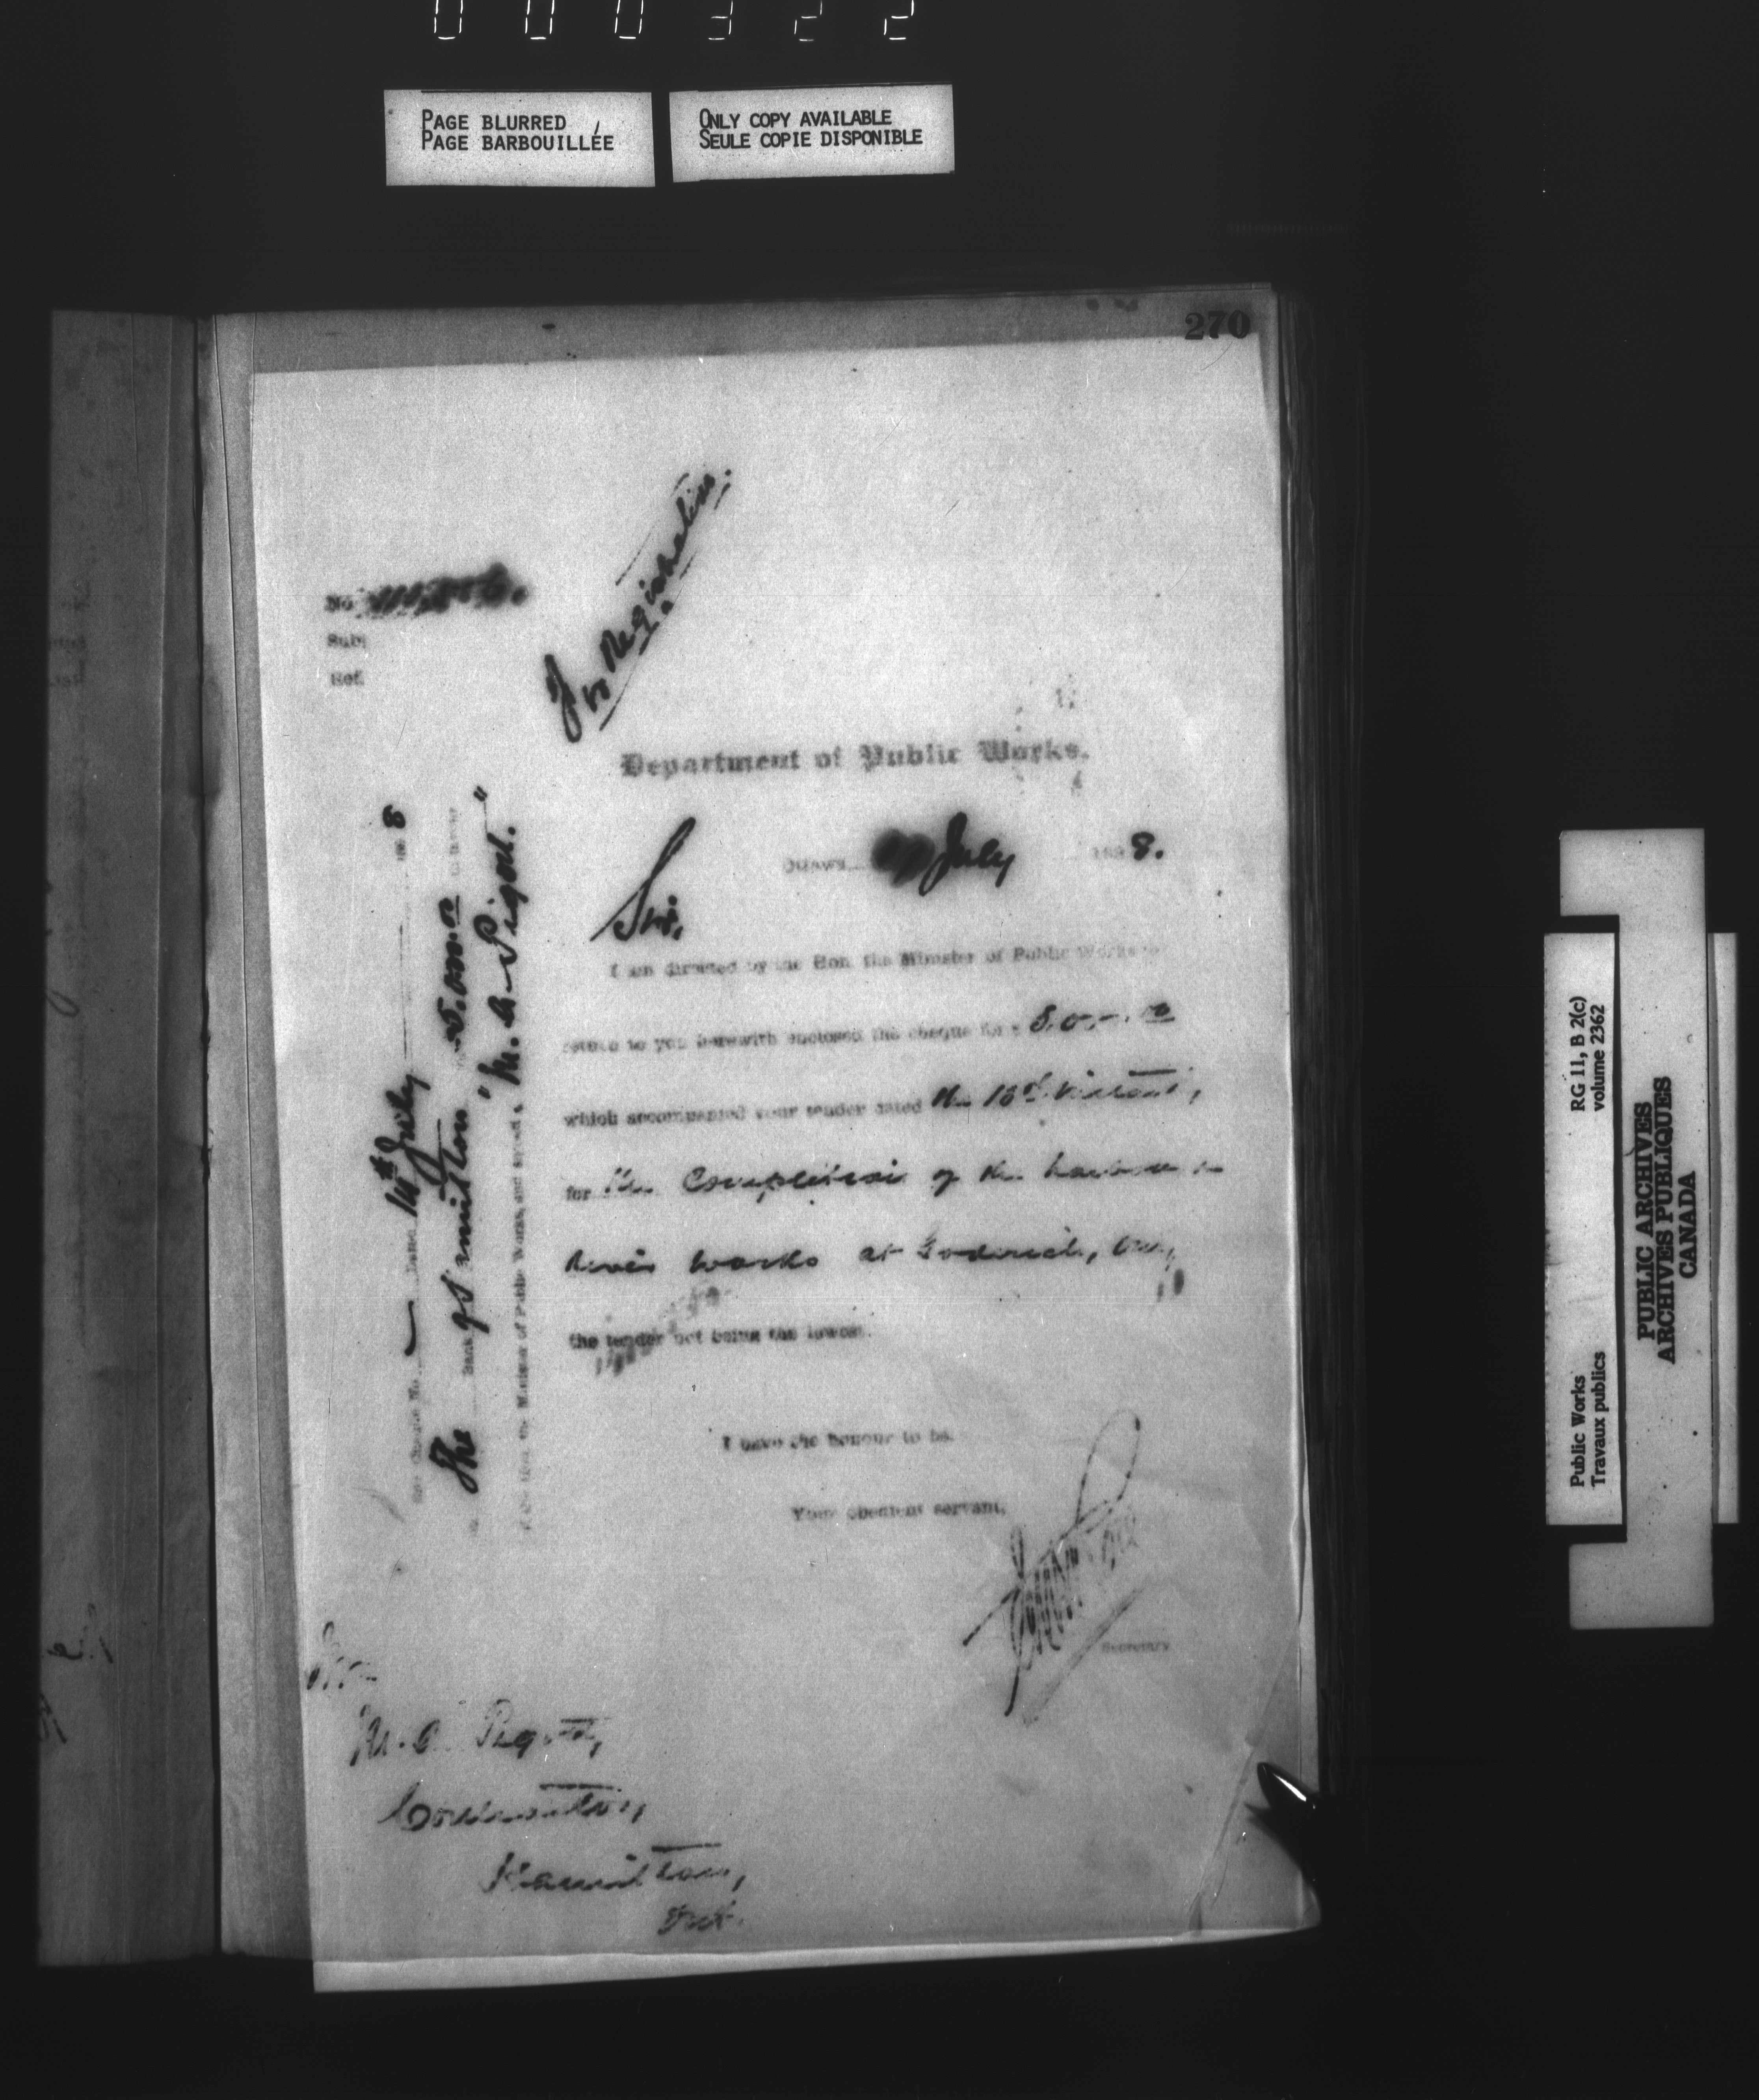 000322
PAGE BLURRED
PAGE BARBOUILLÉE
ONLY COPY AVAILABLE
SEULE COPIE DISPONIBLE
270
No
Subj
Ref.
For Registration.
Department of Public Works.
Ottawa July 1898.
Sir,
I am directed by the Hon. the Minister of Public Works to
return to you herewith enclosed the cheque for $
which accompanied your tender dated the instant,
for the Completion of the harbour
River works at Goderich, Ont,
the tender not being the lowest.
I have the honour to be,
Your obedient servant,
Secretary
M. A. Pigott,
Contractor,
Hamilton,
Ont.
Cheque No. — Dated July 1898
The Bank of Hamilton
of the Hon. the Minister of Public Works, and signed
"M. A. Pigott."
Public Works
Travaux publics
RG 11, B 2(c)
volume 2362
PUBLIC ARCHIVES
ARCHIVES PUBLIQUES
CANADA